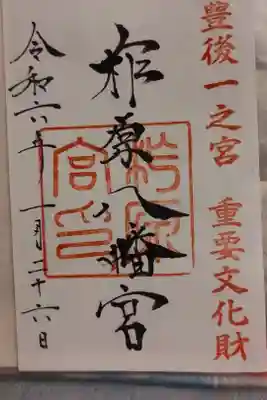 豊後一之宮 重要文化財
柞原八幡宮
柞原
宮印
令和六年一月二十六日